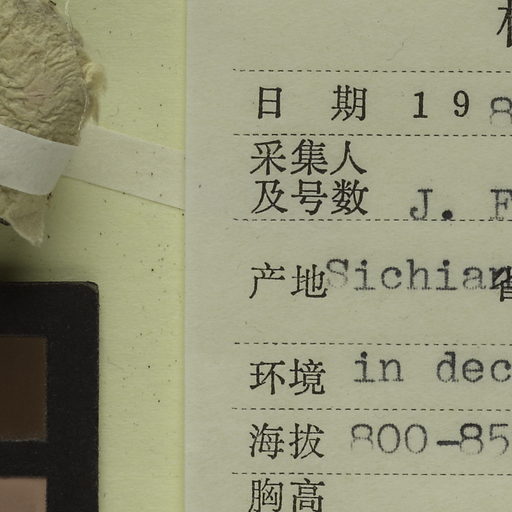 日 期 198
采集人
及号数 J. F
产地 Sichian 省
环境 in dec
海拔 800-85
胸高